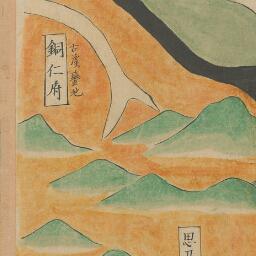 銅仁府
古溪蠻地
思